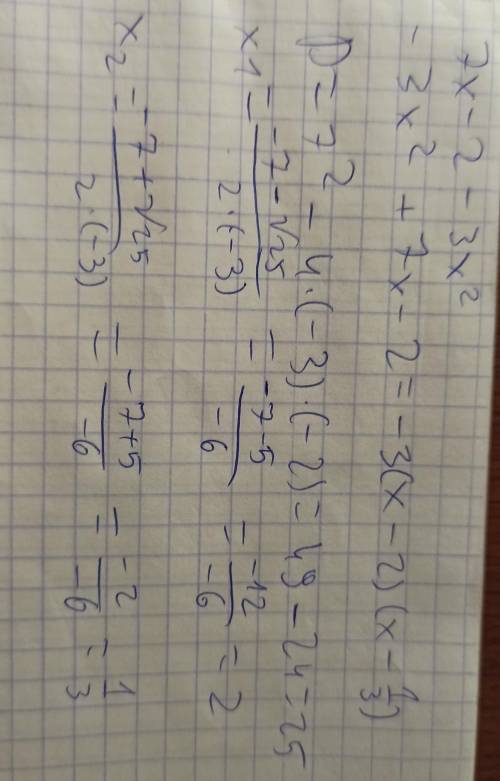 7x - 2 - 3x²
- 3x² + 7x - 2 = -3(x - 2)(x - 1/3)
D = 7² - 4·(-3)·(-2) = 49 - 24 = 25
x1 = (-7 - √25)/(2·(-3)) = (-7-5)/(-6) = (-12)/(-6) = 2
x₂ = (-7 + √25)/(2·(-3)) = (-7+5)/(-6) = (-2)/(-6) = 1/3